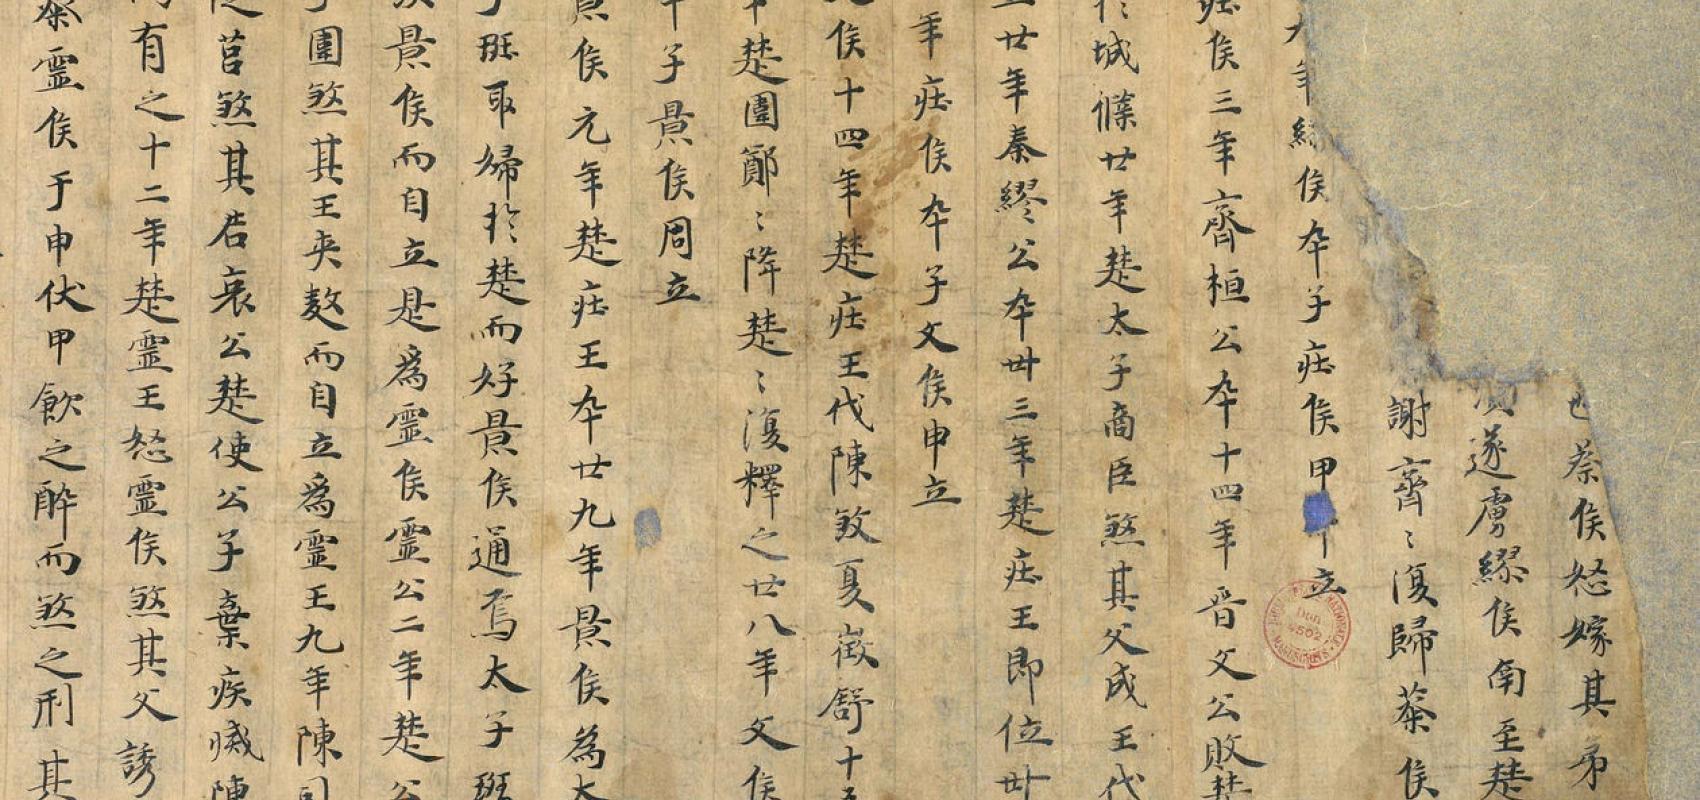 也蔡侯怒嫁其弟
遂虜繆侯南至楚
謝齊〻復歸蔡侯
年繆侯卒子莊侯甲午立
莊侯三年齊桓公卒十四年晉文公敗楚
於城濮廿年楚太子商臣煞其父成王代
立廿年秦繆公卒卅三年楚莊王即位卅
年莊侯卒子文侯申立
文侯十四年楚莊王代陳敓夏徵舒十五
年楚圍鄭〻降楚〻復釋之廿八年文侯
卒子景侯固立
景侯元年楚莊王卒廿九年景侯為太
子班取婦於楚而好景侯通焉太子班
景侯而自立是為靈侯靈公二年楚公
子圍煞其王夾敖而自立為靈王九年陳司
莒煞其君哀公楚使公子棄疾滅陳
而有之十二年楚靈王怒靈侯煞其父誘
蔡靈侯于申伏甲飲之醉而煞之刑其